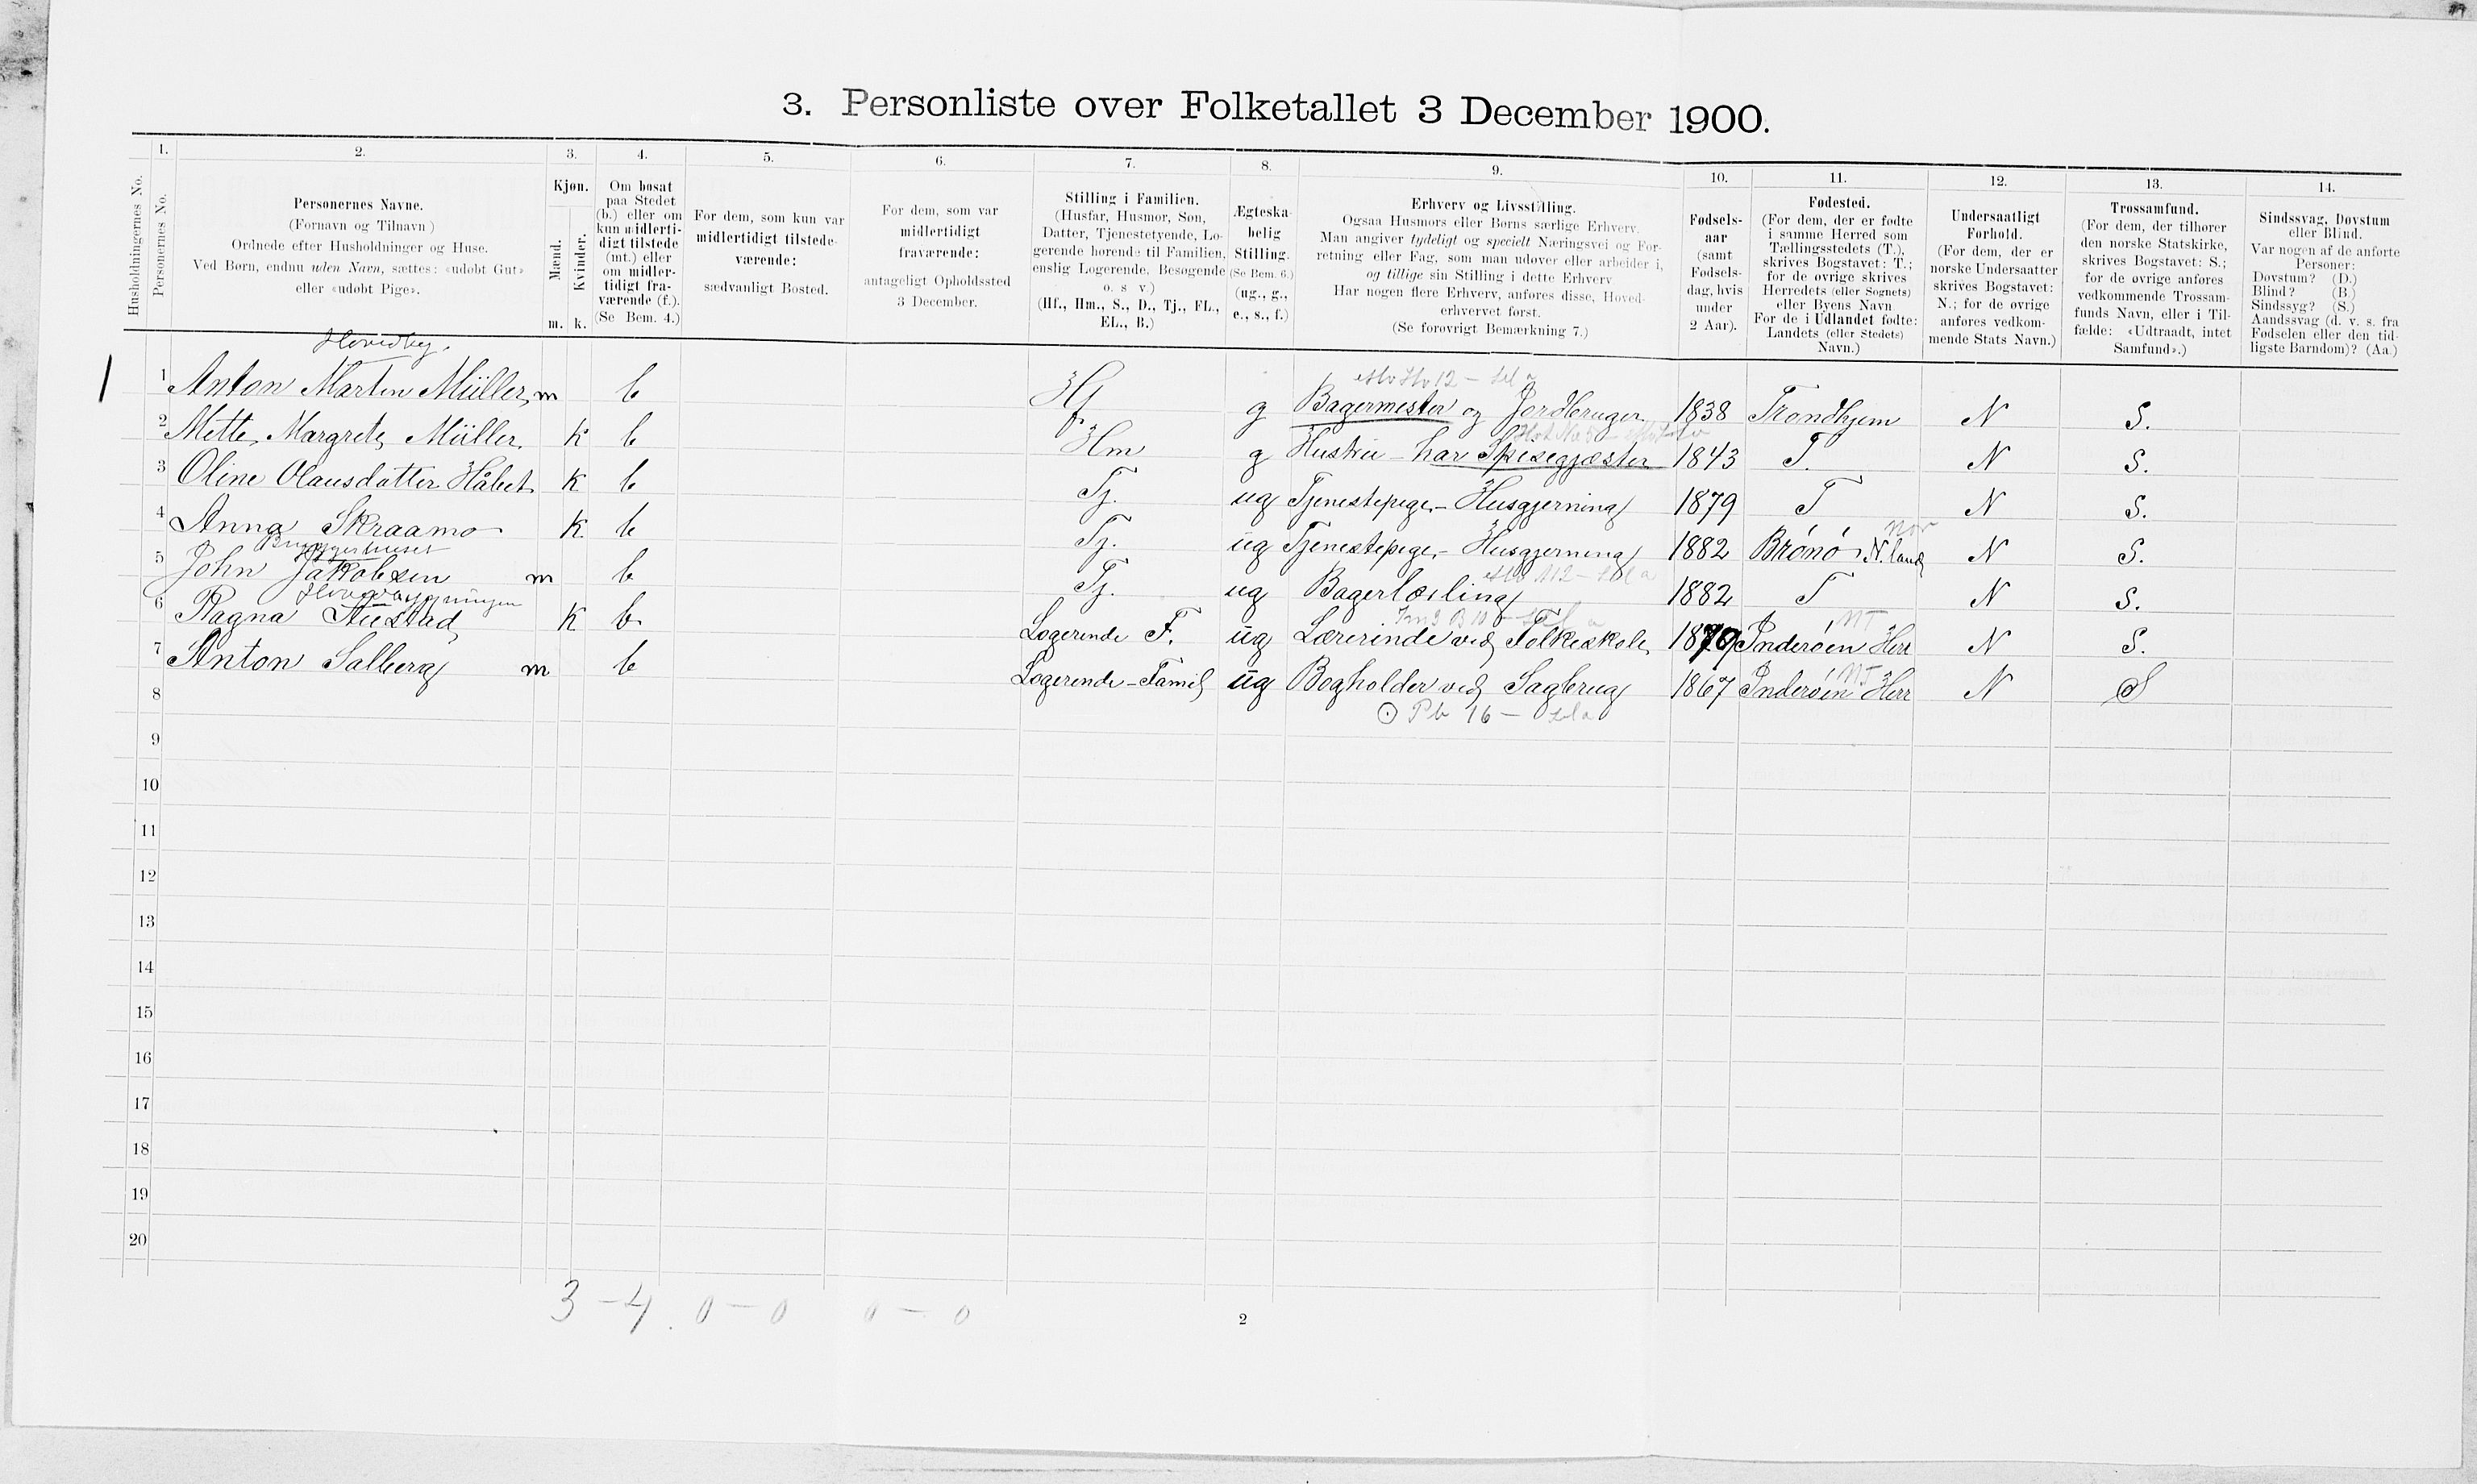 3. Personliste over Folketallet 3 December 1900.
1. 2. 3. 4. 5. 6. 7. 8. 9. 10. 11. 12. 13. 14.
Husholdningernes No.
Personernes No.
Personernes Navne.
(Fornavn og Tilnavn)
Ordnede efter Husholdninger og Huse.
Ved Børn, endnu uden Navn, sættes: «udøbt Gut»
eller «udøbt Pige».
Kjøn.
Mænd.
Kvinder.
m. k.
Om bosat
paa Stedet
(b.) eller om
kun midlerti-
digt tilstede
(mt.) eller
om midler-
tidigt fra-
værende (f.).
(Se Bem. 4.)
For dem, som kun var
midlertidigt tilstede-
værende:
sædvanligt Bosted.
For dem, som var
midlertidigt
fraværende:
antageligt Opholdssted
3 December.
Stilling i Familien.
(Husfar, Husmor, Søn,
Datter, Tjenestetyende, Lo-
gerende hørende til Familien,
enslig Logerende, Besøgende
o. s v)
(Hf., Hm., S., D., Tj., FL.,
EL., B.)
Ægteska-
belig
Stilling.
(Se Bem. 6.)
(ug., g.,
e., s., f.)
Erhverv og Livsstilling.
Ogsaa Husmors eller Børns særlige Erhverv.
Man angiver tydeligt og specielt Næringsvei og For-
retning eller Fag, som man udøver eller arbeider i,
og tillige sin Stilling i dette Erhverv
Har nogen flere Erhverv, anføres disse, Hoved-
erhvervet først.
(Se forøvrigt Bemærkning 7.)
Fødsels-
aar
(samt
Fødsels-
dag, hvis
under
2 Aar).
Fødested.
(For dem, der er fødte
i samme Herred som
Tællingsstedets (T.),
skrives Bogstavet: T.;
for de øvrige skrives
Herredets (eller Sognets)
eller Byens Navn
For de i Udlandet fødte:
Landets (eller Stedets)
Navn.)
Undersaatligt
Forhold.
(For dem, der er
norske Undersaatter
skrives Bogstavet:
N.; for de øvrige
anføres vedkom-
mende Stats Navn.)
Trossamfund.
(For dem, der tilhører
den norske Statskirke,
skrives Bogstavet: S.;
for de øvrige anføres
vedkommende Trossam-
funds Navn, eller i Til-
fælde: «Udtraadt, intet
Samfund».)
Sindssvag, Døvstum
eller Blind.
Var nogen af de anførte
Personer:
Døvstum? (D.)
Blind? (B.)
Sindssyg? (S.)
Aandssvag (d. v. s. fra
Fødselen eller den tid-
ligste Barndom)? (Aa.)
Hovedby.
1 Anton Martin Müller m b Hf g Bagermester og Jordbruger 1838 Trondhjem N S.
2 Mette Margrete Müller k b Hm g Hustru - har Spisegjæster 1843 T. N S.
3 Oline Olausdatter Håbet k b Tj. ug Tjenestepige - Husgjerning 1879 T N S.
4 Anna Skraamo k b Tj. ug Tjenestepige - Husgjerning 1882 Brønø N.land N S.
Nor
Bryggerhuset
5 John Jakobsen m b Tj. ug Bagerlærling 1882 T N S.
Hovedbygningen
6 Ragna Austad k b Logerende F. ug Lærerinde ved Folkeskole 1870 Inderøen Herr N S.
NT
7 Anton Salberg m b Logerende - Famil ug Bogholder ved Sagbrug 1867 Inderøen Herr N S
NT
8
9
10
11
12
13
14
15
16
17
18
19
20
3 - 4. 0 - 0 0 - 0
2